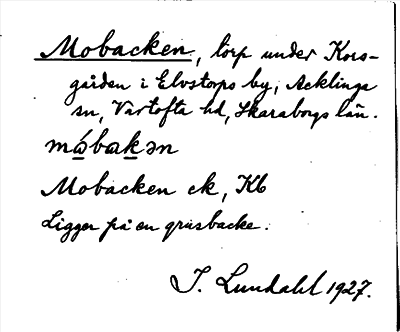 Mobacken, torp under Kors-
gården i Elvstorps by, Acklinga
sn, Vartofta hd, Skaraborgs län.
Mobacken ek, Kb
Ligger på en grusbacke.
I. Lundahl 1927.